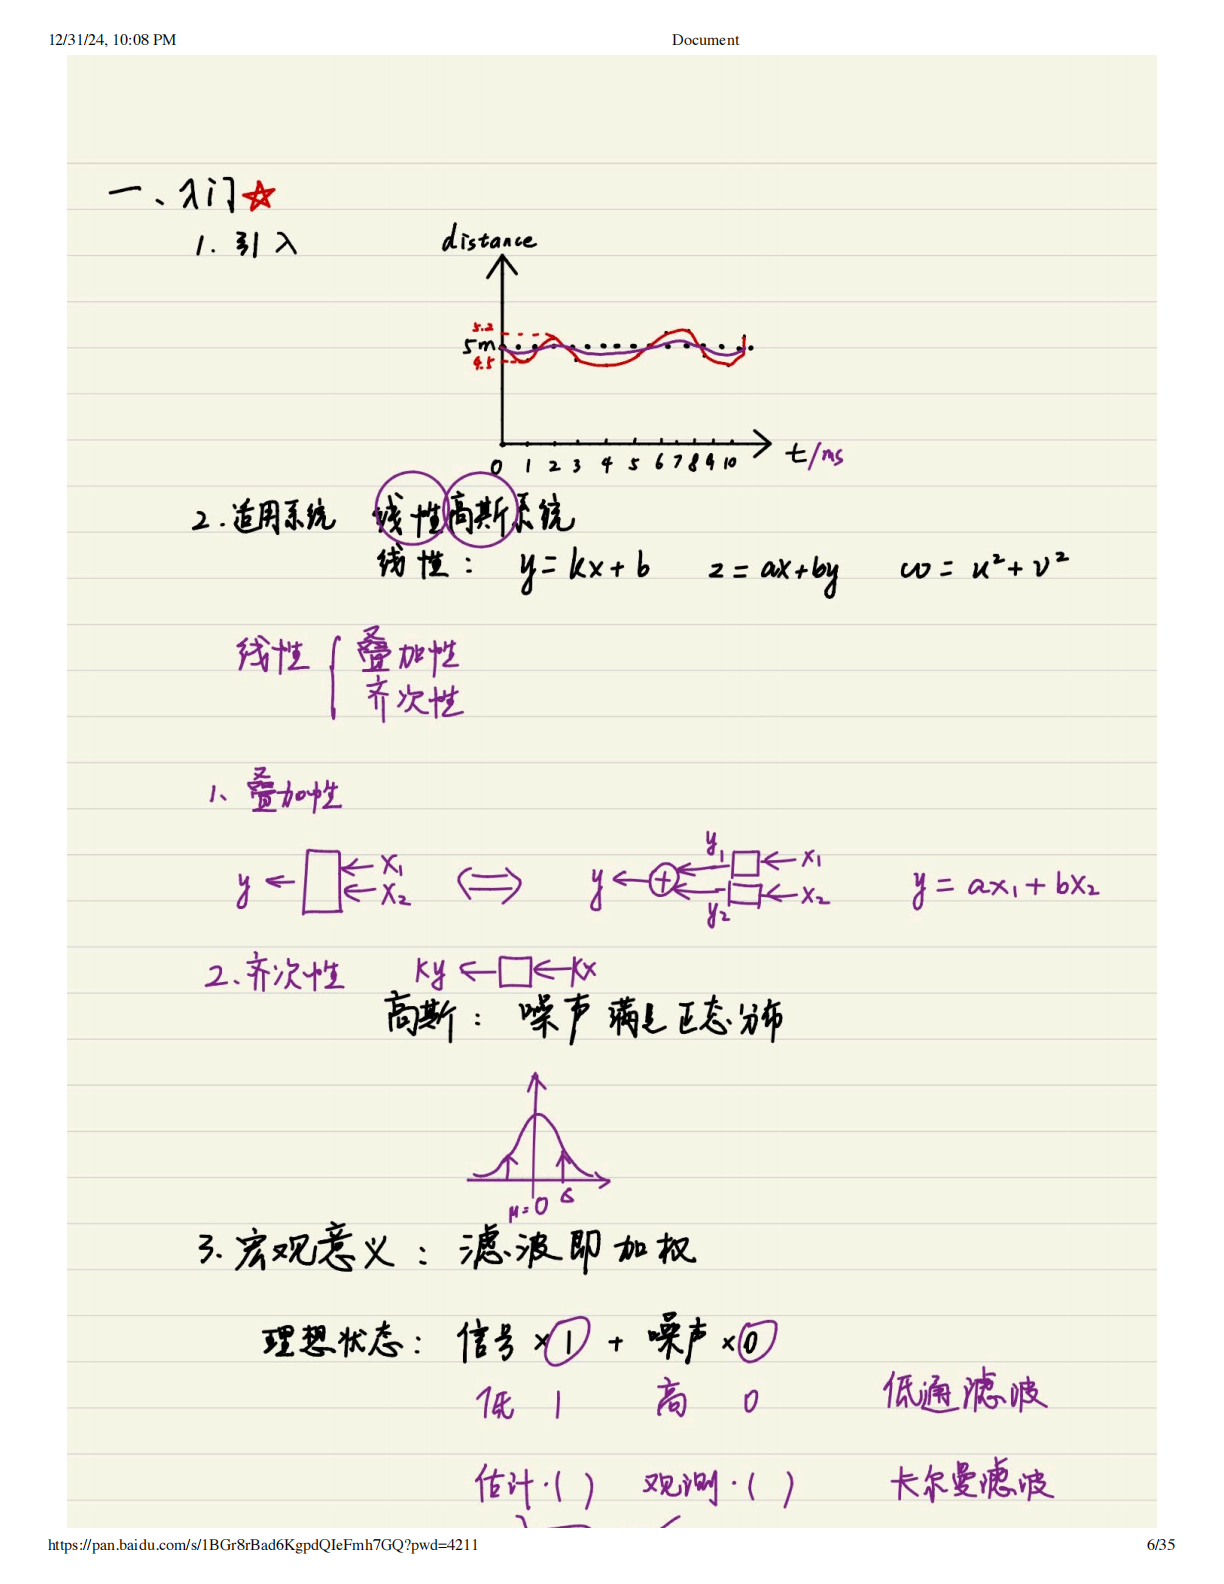 12/31/24, 10:08 PM Document
一、入门
1. 引入
distance
5.2
5m
4.5
0 1 2 3 4 5 6 7 8 9 10 t/ms
2.适用系统 线性高斯系统
线性: y=kx+b z=ax+by ω=u²+v²
线性 { 叠加性
齐次性
1、叠加性
y ← ← x₁ ⟺ y ← + y₁ ← x₁ y=ax₁+bx₂
← x₂ y₂ ← x₂
2、齐次性 ky ← ← kx
高斯: 噪声满足正态分布
μ=0 σ
3.宏观意义: 滤波即加权
理想状态: 信号×1 + 噪声×0
低 1 高 0 低通滤波
估计·( ) 观测·( ) 卡尔曼滤波
https://pan.baidu.com/s/1BGr8rBad6KgpdQIeFmh7GQ?pwd=4211 6/35